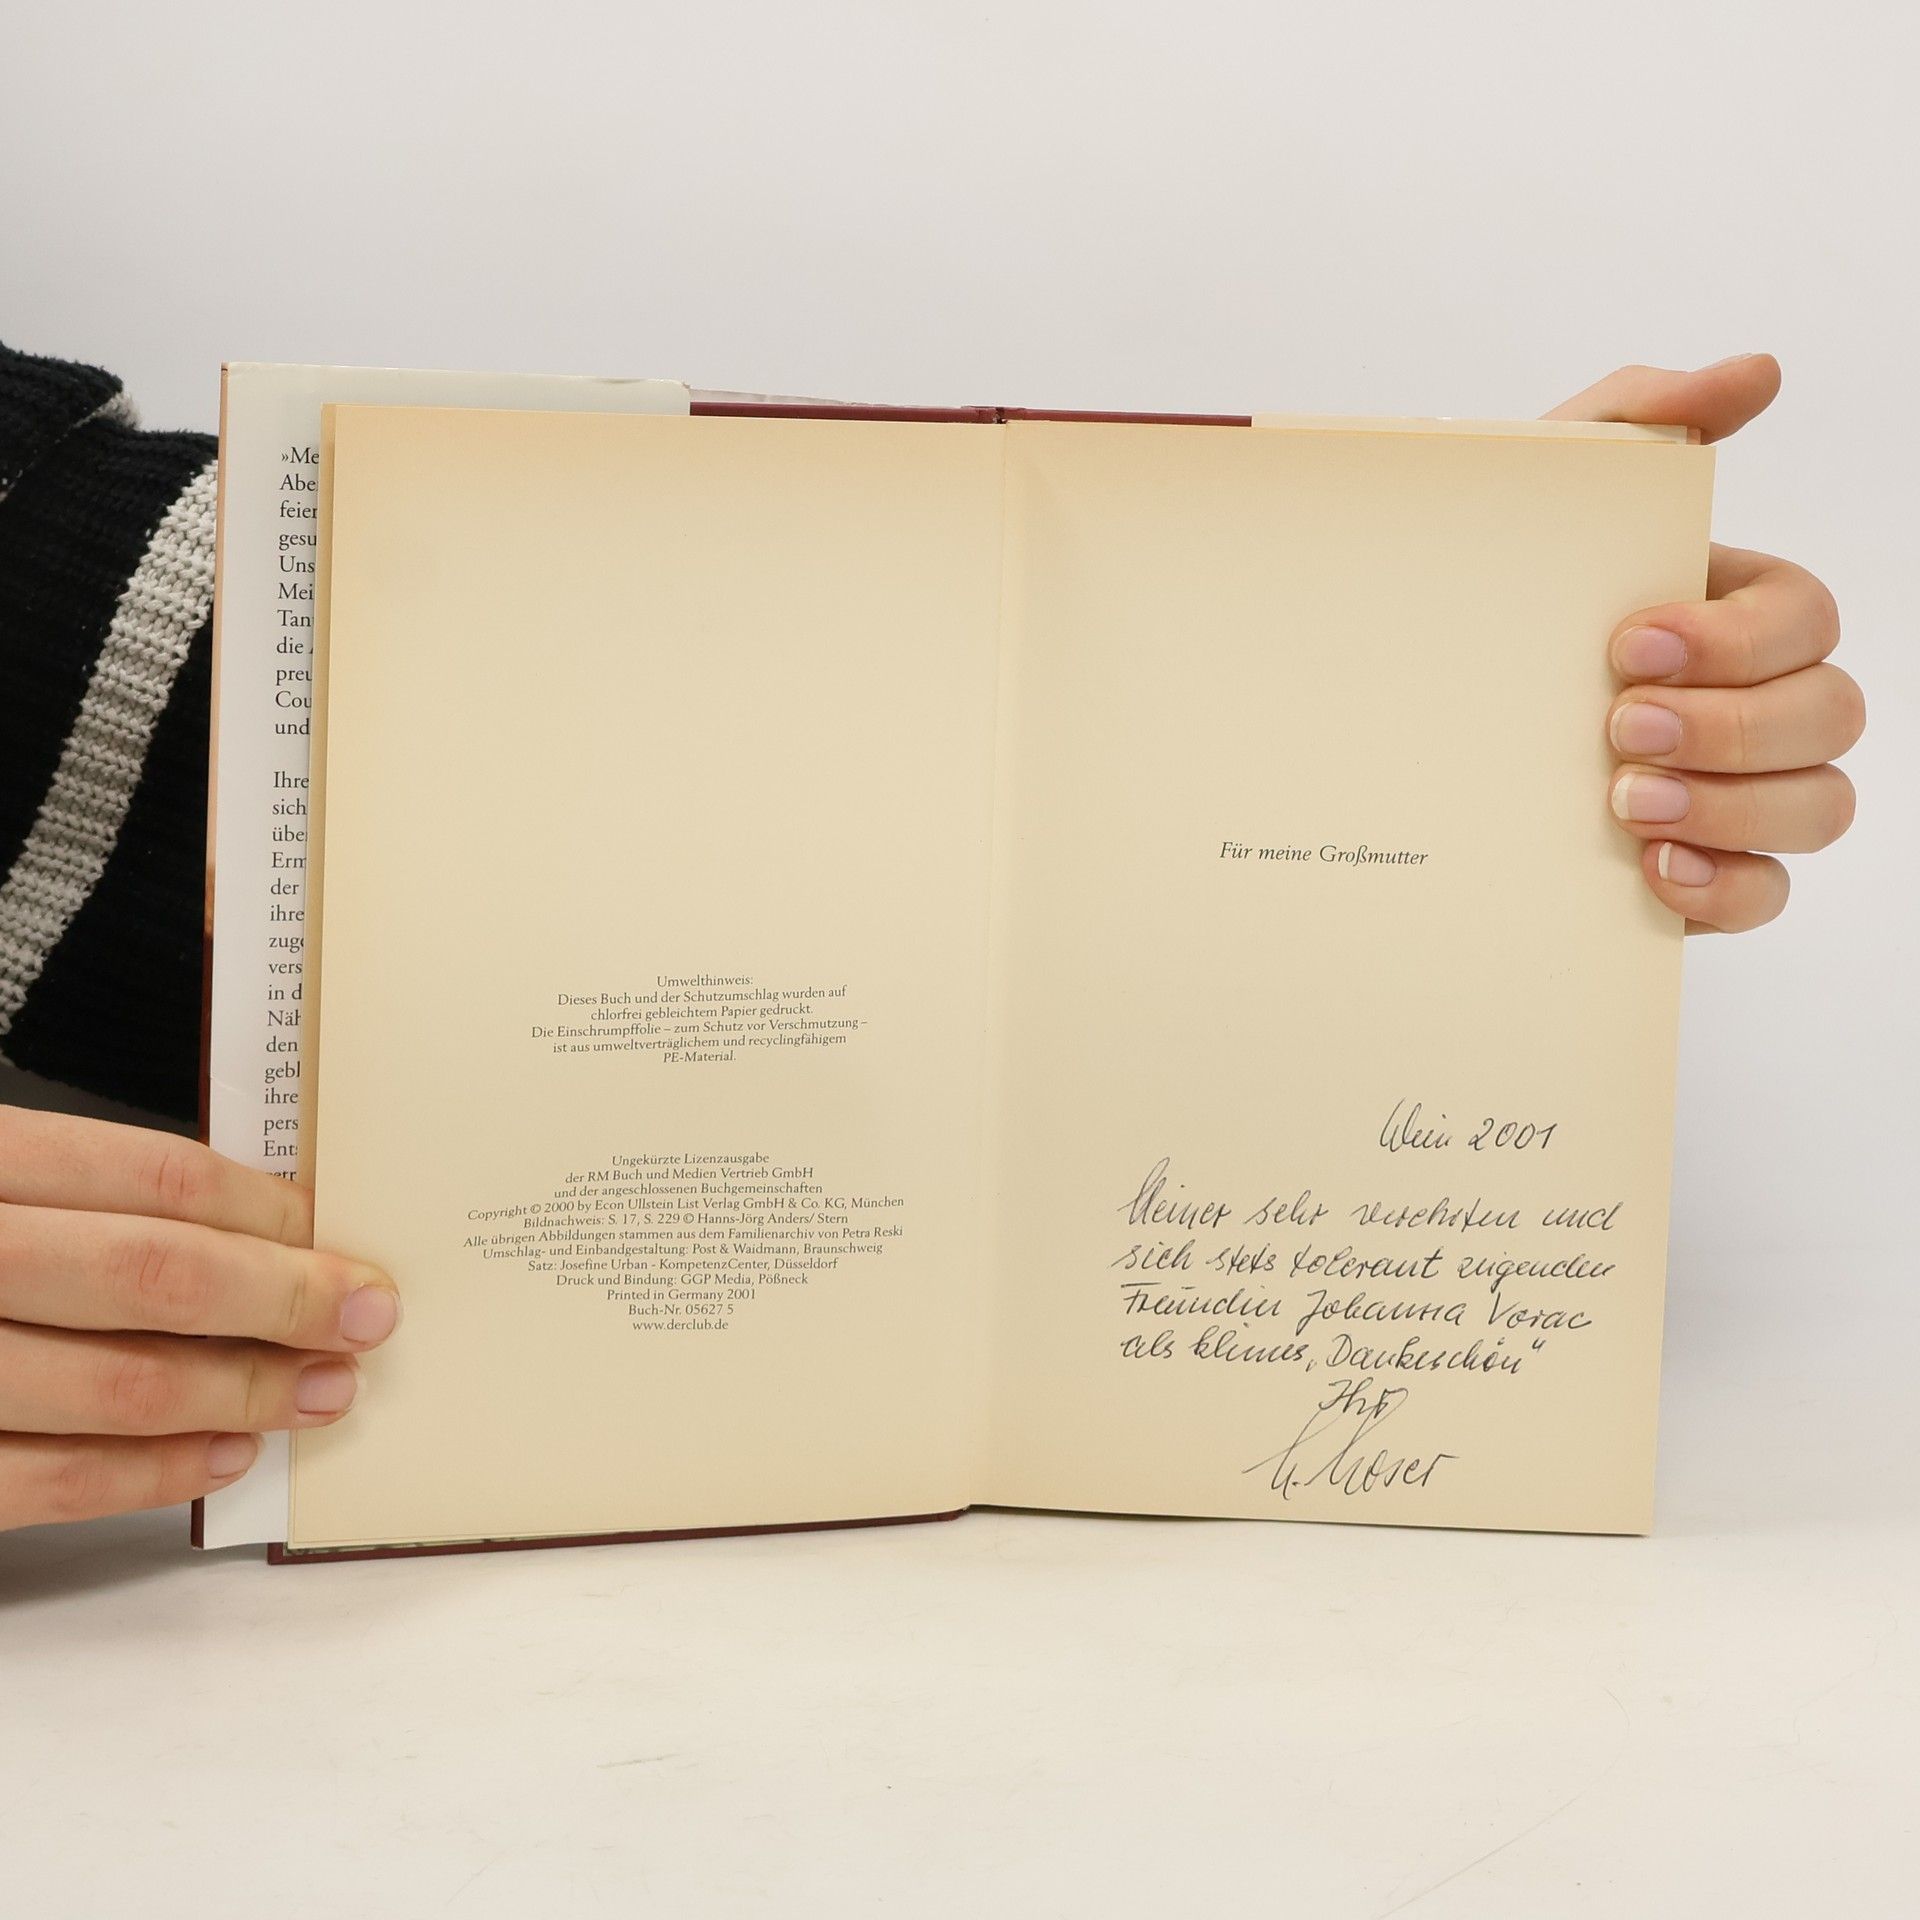 »Me
Abe
feier
gesu
Uns
Mei
Tan
die
preu
Cou
und
Ihre
sich
übe
Erm
der
ihre
zuge
vers
in d
Näh
den
gebl
ihre
pers
Ents
Umwelthinweis:
Dieses Buch und der Schutzumschlag wurden auf
chlorfrei gebleichtem Papier gedruckt.
Die Einschrumpffolie – zum Schutz vor Verschmutzung –
ist aus umweltverträglichem und recyclingfähigem
PE-Material.
Ungekürzte Lizenzausgabe
der RM Buch und Medien Vertrieb GmbH
und der angeschlossenen Buchgemeinschaften
Copyright © 2000 by Econ Ullstein List Verlag GmbH & Co. KG, München
Bildnachweis: S. 17, S. 229 © Hanns-Jörg Anders/ Stern
Alle übrigen Abbildungen stammen aus dem Familienarchiv von Petra Reski
Umschlag- und Einbandgestaltung: Post & Waidmann, Braunschweig
Satz: Josefine Urban - KompetenzCenter, Düsseldorf
Druck und Bindung: GGP Media, Pößneck
Printed in Germany 2001
Buch-Nr. 05627 5
www.derclub.de
Für meine Großmutter
Wien 2001
Meiner sehr verehrten und
sich stets tolerant zeigenden
Freundin Johanna Vorac
als kleines „Dankeschön"
Ihr
Moser